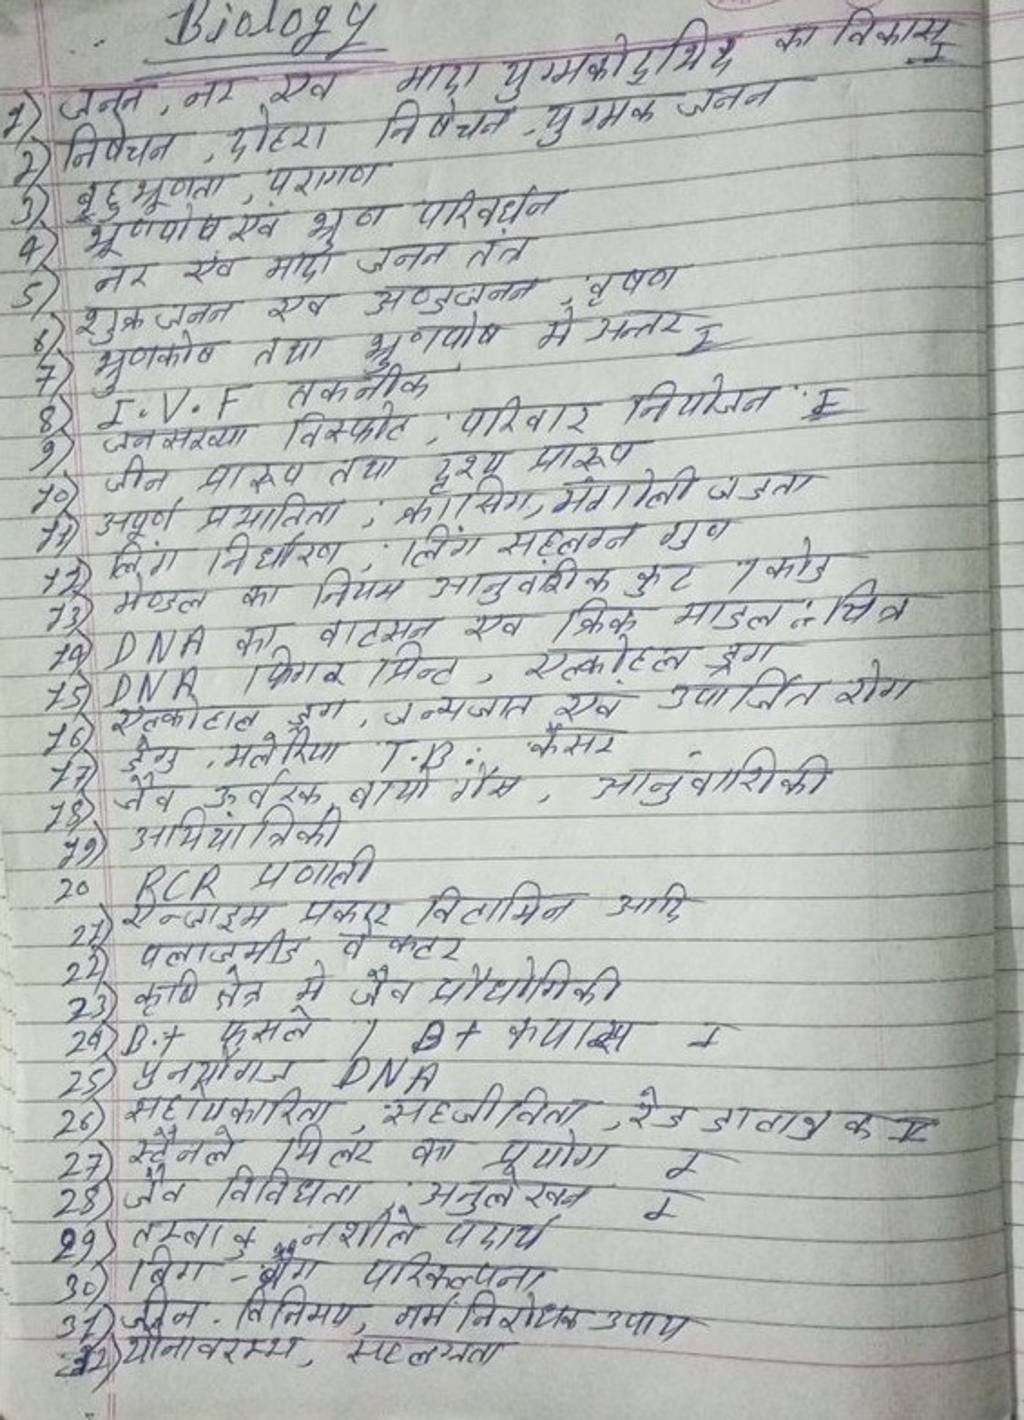 Biology
1) जनन, नर एवं मादा युग्मकोद्भिद का विकास I
2) निषेचन, दोहरा निषेचन, युग्मक जनन
3) बहुभ्रूणता, परागण
4) भ्रूणपोष एवं भ्रूण परिवर्धन
5) नर एंव मादा जनन तंत्र
6) शुक्रजनन एवं अण्डजनन, वृषण
7) भ्रुणकोष तथा भ्रुणपोष मे अन्तर I
8) I.V.F तकनीक
9) जनसंख्या विस्फोट, परिवार नियोजन I
10) जीन प्रारूप तथा दृश्य प्रारूप
11) अपूर्ण प्रभाविता, क्रासिंग, मंगोली जडता
12) लिंग निर्धारण, लिंग सहलग्न गुण
13) मेण्डल का नियम आनुवंशिक कुट / कोड
14) DNA का वाटसन एवं क्रिक माडल :- चित्र
15) DNA फिंगर प्रिन्ट, एल्कोहल ड्रग
16) एल्कोहाल ड्रग, जन्मजात एवं उपार्जित रोग
17) डेंगु, मलेरिया T.B. कैंसर
18) जैव ऊर्वरक, बायो गैस, आनुंवाशिकी
19) अभियांत्रिकी
20 PCR प्रणाली
21) एन्जाइम प्रकार विटामिन आदि
22) प्लाजमीड वेक्टर
23) कृषि क्षेत्र मे जैव प्रौधोगिकी
24) B.t फसले / Bt कपास I
25) पुनर्योगज DNA
26) सहोपकारिता, सहजीविता, रेड डाटा बुक I
27) स्टैनले मिलर का प्रयोग I
28) जैव विविधता, अनुलेखन I
29) तम्बाकु, नशीले पदार्थ
30) बिग-बैंग परिकल्पना
31) जीन विनिमय, गर्भ निरोधक उपाय
32) यौनावरम्भ, सहलग्नता